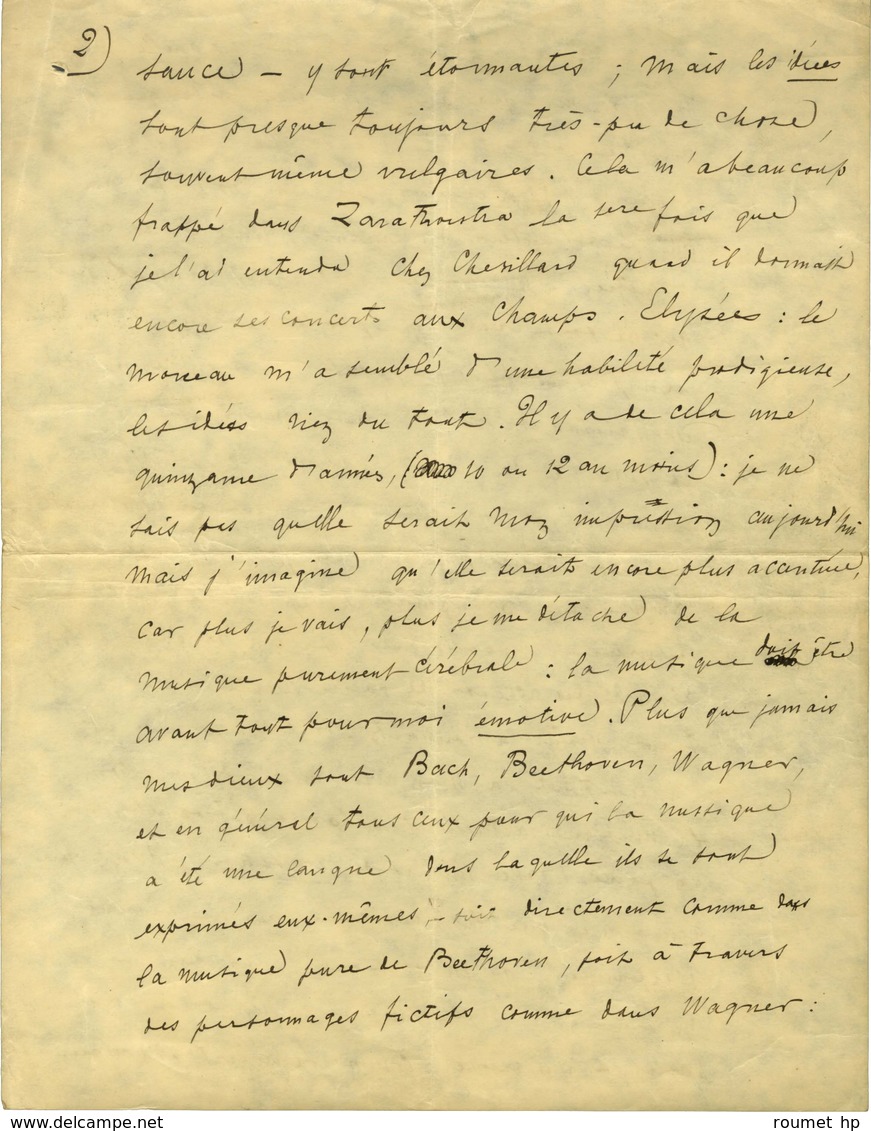 2)
sance – y sont étonnantes ; mais les idées
sont presque toujours très-peu de chose,
souvent même vulgaires. Cela m'a beaucoup
frappé dans Zarathoustra la 1ere fois que
je l'ai entendu chez Chevillard quand il donnait
encore ses concerts aux Champs-Elysées : le
morceau m'a semblé d'une habileté prodigieuse,
les idées rien du tout. Il y a de cela une
quinzaine d'années, (10 ou 12 au moins) : je ne
sais pas quelle serait mon impression aujourd'hui
mais j'imagine qu'elle serait encore plus accentuée,
car plus je vais, plus je me détache de la
musique purement cérébrale : la musique doit être
avant tout pour moi émotive. Plus que jamais
mes dieux sont Bach, Beethoven, Wagner,
et en général tous ceux pour qui la musique
a été une langue dans laquelle ils se sont
exprimés eux-mêmes, – soit directement comme dans
la musique pure de Beethoven, soit à travers
des personnages fictifs comme dans Wagner :
roumet hp